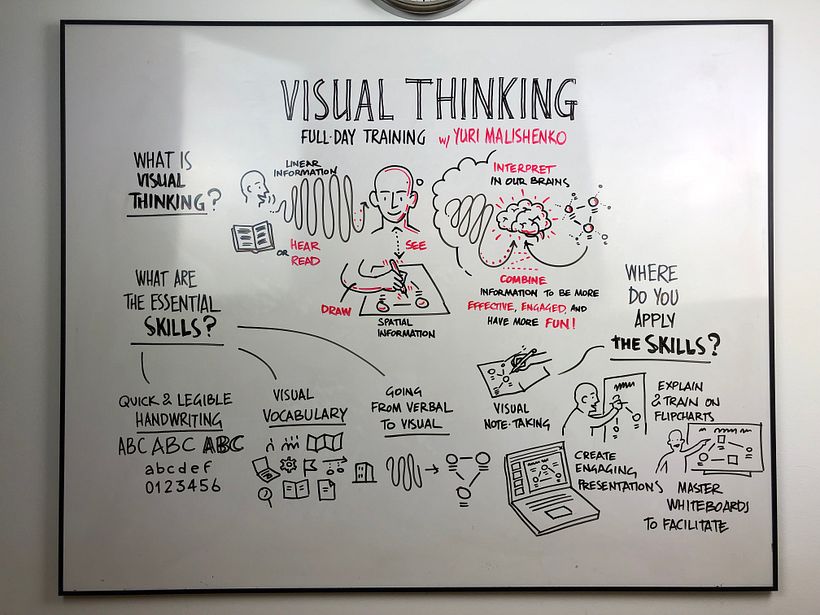 VISUAL THINKING
FULL-DAY TRAINING w/ YURI MALISHENKO
WHAT IS
VISUAL
THINKING?
LINEAR
INFORMATION
OR HEAR
READ
SEE
DRAW
SPATIAL
INFORMATION
INTERPRET
IN OUR BRAINS
COMBINE
INFORMATION TO BE MORE
EFFECTIVE, ENGAGED, AND
HAVE MORE FUN!
WHAT ARE
THE ESSENTIAL
SKILLS?
QUICK & LEGIBLE
HANDWRITING
ABC ABC ABC
abcdef
0123456
VISUAL
VOCABULARY
GOING
FROM VERBAL
TO VISUAL
WHERE
DO YOU
APPLY
THE SKILLS?
VISUAL
NOTE-TAKING
EXPLAIN
& TRAIN ON
FLIPCHARTS
CREATE
ENGAGING
PRESENTATIONS
MASTER
WHITEBOARDS
TO FACILITATE